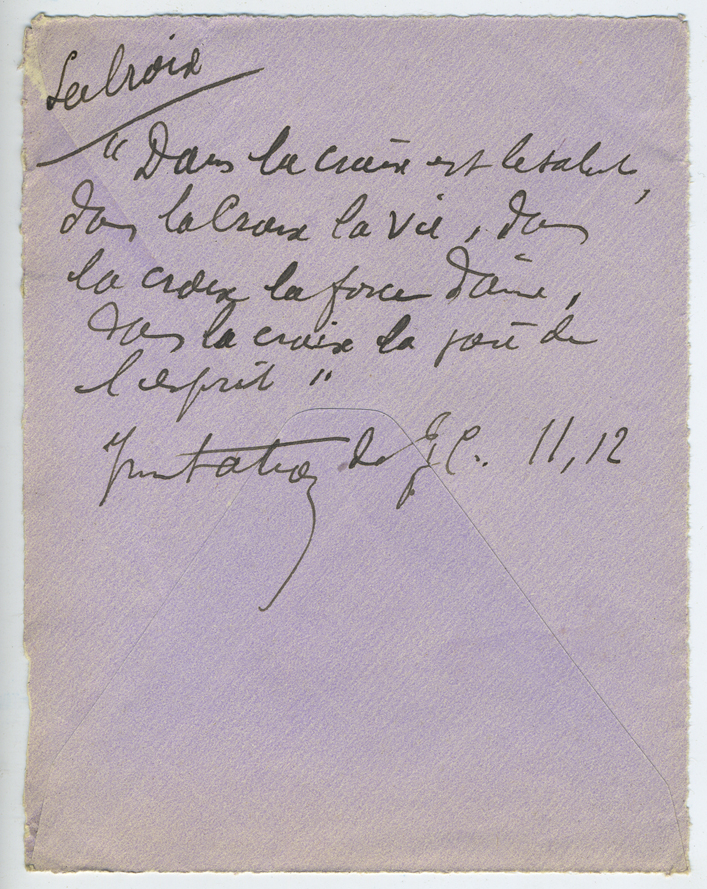 La Croix
"Dans la croix est le salut,
dans la Croix la vie, dans
la croix la force d'âme,
dans la croix la joie de
l'esprit"
Imitation de J. C. 11, 12